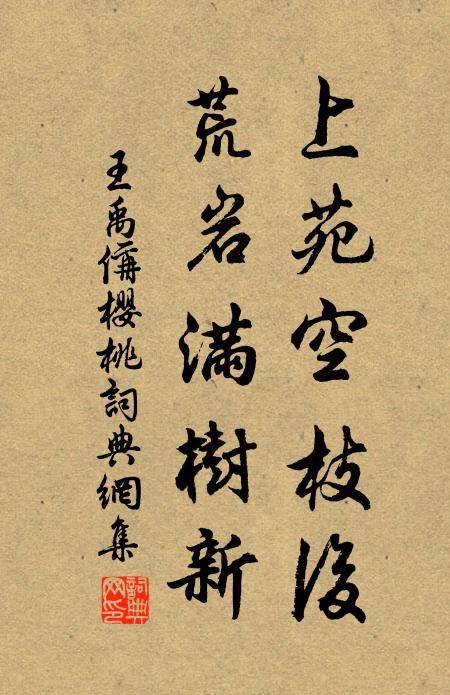 上苑空枝後
荒岩滿樹新
王禹偁櫻桃詞典網集
詞典網印